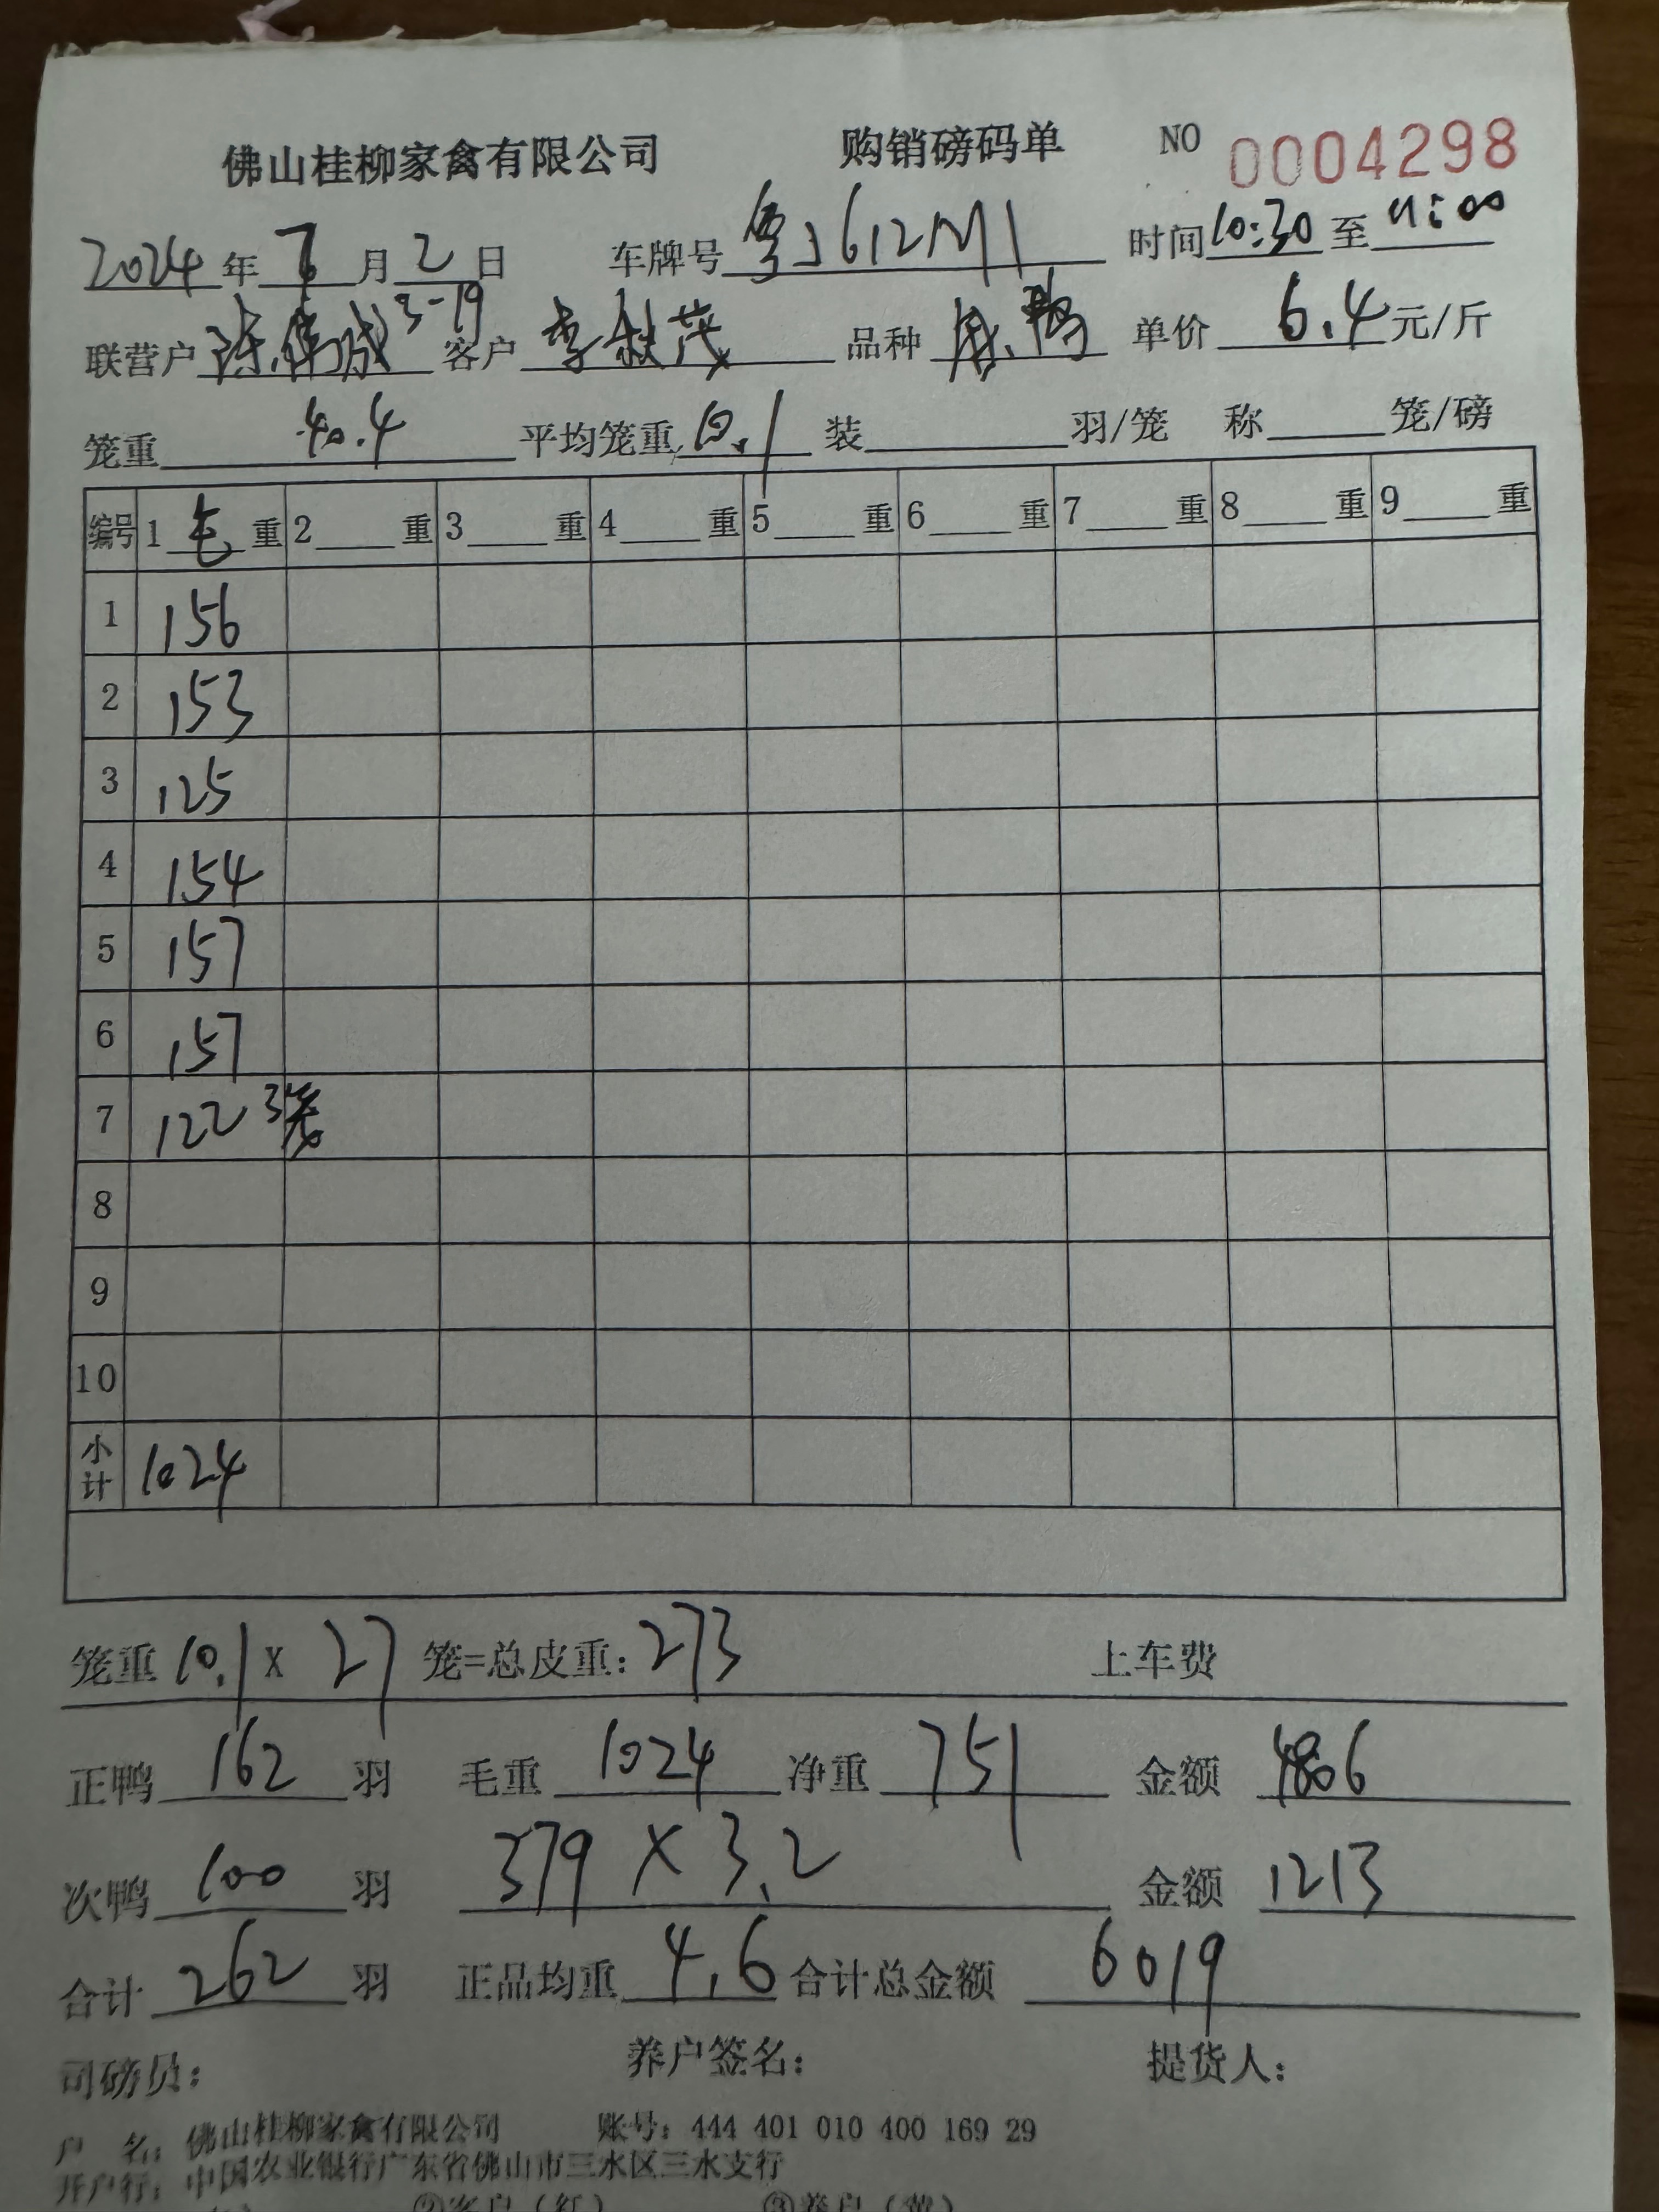 佛山桂柳家禽有限公司 购销磅码单 NO 0004298
2024年7月2日 车牌号粤J612M1 时间10:30至11:00
联营户陈伟成3-19 客户李秋茂 品种 鸭 单价6.4元/斤
笼重40.4 平均笼重10.1 装 羽/笼 称 笼/磅
编号 1毛重 2 重 3 重 4 重 5 重 6 重 7 重 8 重 9 重
1 156
2 153
3 125
4 154
5 157
6 157
7 122 3笼
8
9
10
小计 1024
笼重10.1 X 27 笼=总皮重:273 上车费
正鸭162羽 毛重1024 净重751 金额4806
次鸭100羽 379 X 3.2 金额1213
合计262羽 正品均重4.6 合计总金额6019
司磅员: 养户签名: 提货人:
户 名: 佛山桂柳家禽有限公司 账号: 444 401 010 400 169 29
开户行: 中国农业银行广东省佛山市三水区三水支行
②客户(红) ③养户(黄)